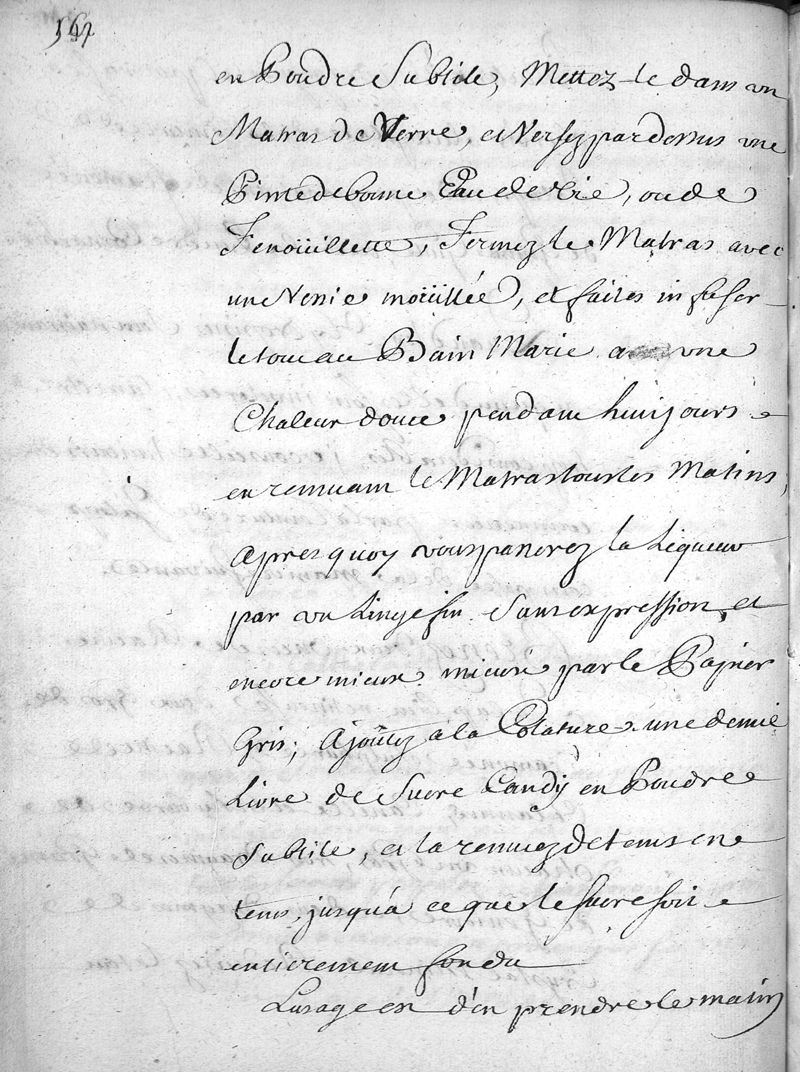 164
en Poudre Subtile, Mettez-le dans un
Matras de Verre et Versez par dessus une
Pinte de bonne Eau de Vie, ou de
Fenoüillette, Fermez le Matras avec
une Vessie moüillée, et faites infuser
le tout au Bain Marie a une
Chaleur douce pendant huit jours
en remuant le Matras tous les Matins,
Apres quoy vous passerez la Liqueur
par un Linge fin Sans expression, et
encore mieux mieux par le Papier
Gris; Ajoûtez a la Colature une demie
Livre de Sucre Candy en Poudre
Subtile, et la remuez de tems en
tems, jusqu'a ce que le sucre soit
entierement fondu
L'usage est d'en prendre le matin